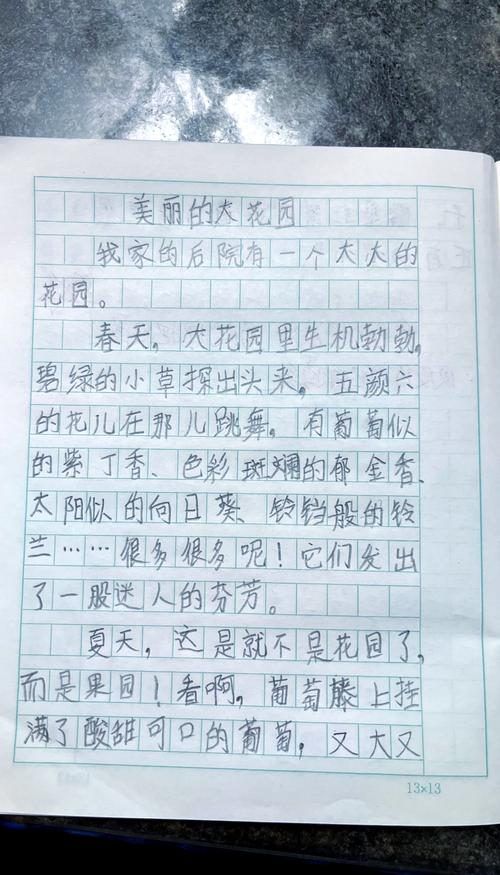 美丽的大花园
我家的后院有一个大大的
花园。
春天，大花园里生机勃勃，
碧绿的小草探出头来。五颜六
的花儿在那儿跳舞。有葡萄似
的紫丁香、色彩斑斓的郁金香、
太阳似的向日葵、铃铛般的铃
兰……很多很多呢！它们发出
了一股迷人的芬芳。
夏天，这是就不是花园了，
而是果园！看啊，葡萄藤上挂
满了酸甜可口的葡萄，又大又
13×13